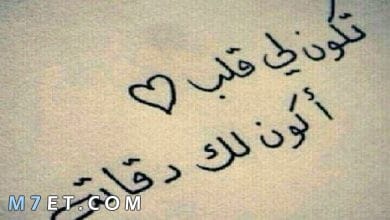 تكون لي قلب ♡
أكون لك دقاته
M7ET.COM